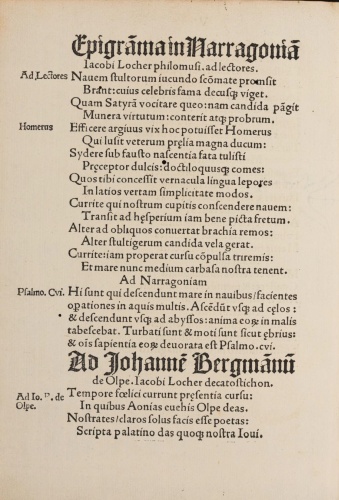 Epigrãma in Narragoniã
Iacobi Locher philomusi. ad lectores.
Ad Lectores
Nauem stultorum iucundo scõmate promsit
Brant: cuius celebris fama decusq̃ viget.
Quam Satyrã vocitare queo: nam candida pãgit
Munera virtutum: conterit atq̃ probrum.
Homerus
Efficere argiuus vix hoc potuisset Homerus
Qui lusit veterum pręlia magna ducum:
Sydere sub fausto nascentia fata tulisti
Pręceptor dulcis: doctiloquusq̃ comes:
Quos tibi concessit vernacula lingua lepores
In latios vertam simplicitate modos.
Currite qui nostrum cupitis conscendere nauem:
Transit ad hęsperium iam bene picta fretum.
Alter ad obliquos conuertat brachia remos:
Alter stultigerum candida vela gerat.
Currite: iam properat cursu cõpulsa triremis:
Et mare nunc medium carbasa nostra tenent.
Ad Narragoniam
Psalmo. Cvi.
Hi sunt qui descendunt mare in nauibus/facientes
oꝑationes in aquis multis. Ascẽdũt vsq̃ ad cęlos:
& descendunt vsq̃ ad abyssos: anima eoꝝ in malis
tabescebat. Turbati sunt & moti sunt sicut ebrius:
& oĩs sapientia eoꝝ deuorata est Psalmo .cvi.
Ad Johannẽ Bergmãnũ
de Olpe. Iacobi Locher decatostichon.
Ad Io. B. de
Olpe.
Tempore fœlici currunt pręsentia cursu:
In quibus Aonias euehis Olpe deas.
Nostrates/claros solus facis esse poetas:
Scripta palatino das quoq̃ nostra Ioui.